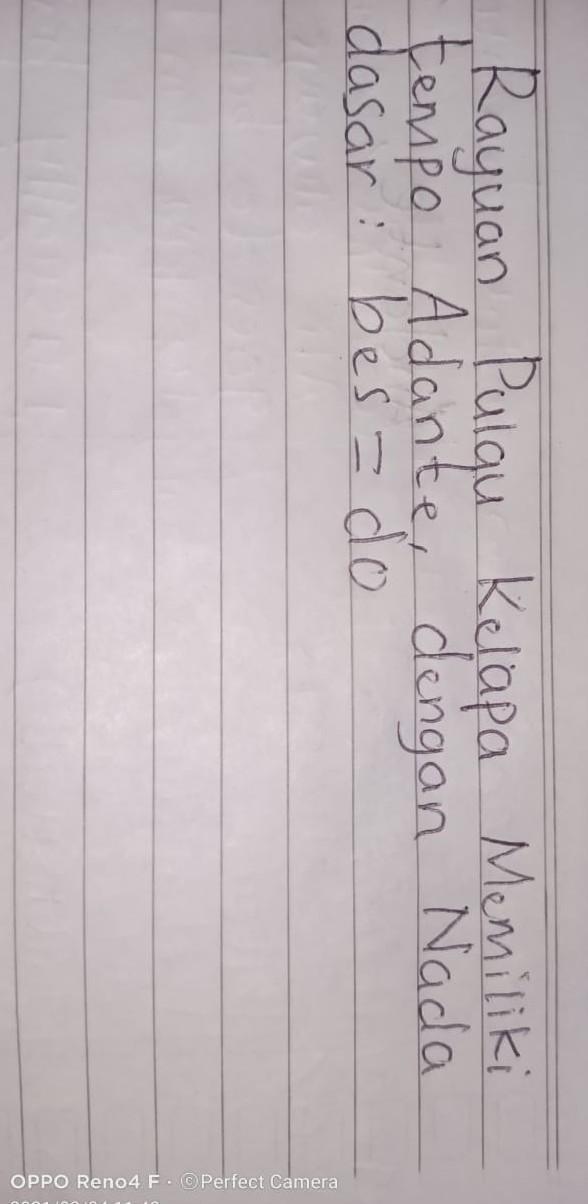 Rayuan Pulau Kelapa Memiliki
tempo Adante, dengan Nada
dasar : bes = do
OPPO Reno4 F · ©Perfect Camera